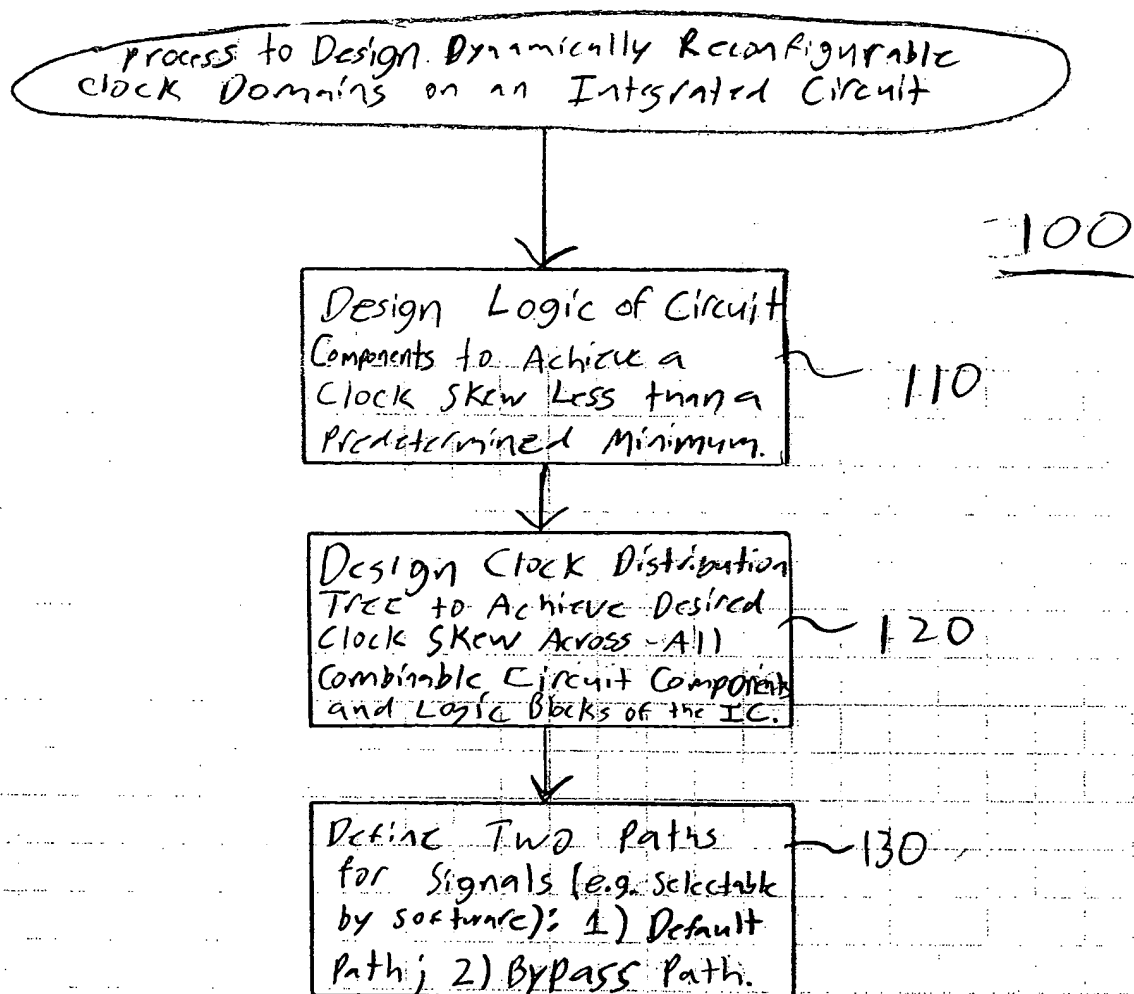 process to Design Dynamically Reconfigurable
clock Domains on an Integrated Circuit
100
Design Logic of Circuit
Components to Achieve a
Clock Skew Less than a
Predetermined Minimum.
110
Design Clock Distribution
Tree to Achieve Desired
Clock Skew Across All
Combinable Circuit Components
and Logic Blocks of the IC.
120
Define Two Paths
for Signals (e.g. Selectable
by software): 1) Default
Path; 2) Bypass Path.
130